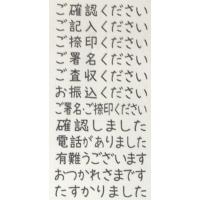 ご確認ください
ご記入ください
ご捺印ください
ご署名ください
ご査収ください
お振込ください
ご署名・ご捺印ください
確認しました
電話がありました
有難うございます
おつかれさまです
たすかりました